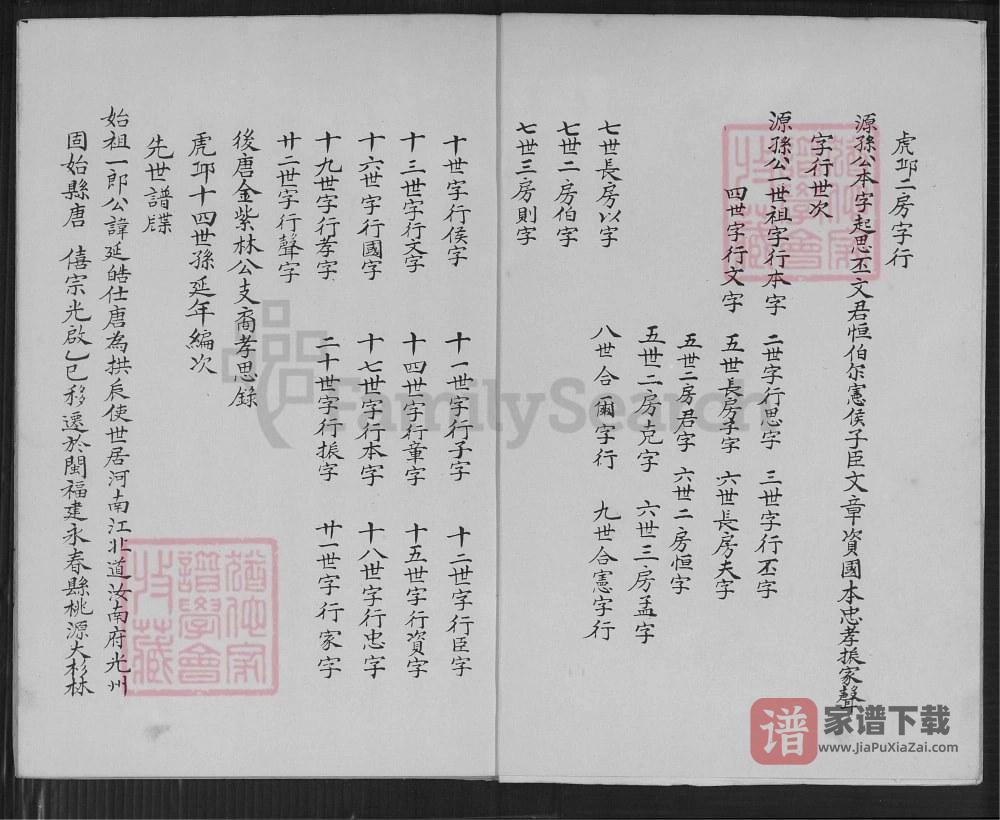 虎邱二房字行
源孫公本字起思丕文君恒伯尔憲侯子臣文章資國本忠孝振家聲
字行世次
源孫公一世祖字行本字 二世字行思字 三世字行丕字
四世字行文字 五世長房子字 六世長房夫字
五世二房君字 六世二房恒字
五世三房克字 六世三房孟字
七世長房以字 八世合爾字行 九世合憲字行
七世二房伯字
七世三房則字
十世字行侯字 十一世字行子字 十二世字行臣字
十三世字行文字 十四世字行章字 十五世字行資字
十六世字行國字 十七世字行本字 十八世字行忠字
十九世字行孝字 二十世字行振字 廿一世字行家字
廿二世字行聲字
後唐金紫林公支裔孝思錄
虎邱十四世孫延年編次
先世譜牒
始祖一郎公諱延皓仕唐為拱辰使世居河南江北道汝南府光州
固始縣唐 僖宗光啟乙巳移遷於閩福建永春縣桃源大杉林
譜學會
收藏
譜學會
收藏
FamilySearch
谱
家谱下载
www.JiaPuXiaZai.com